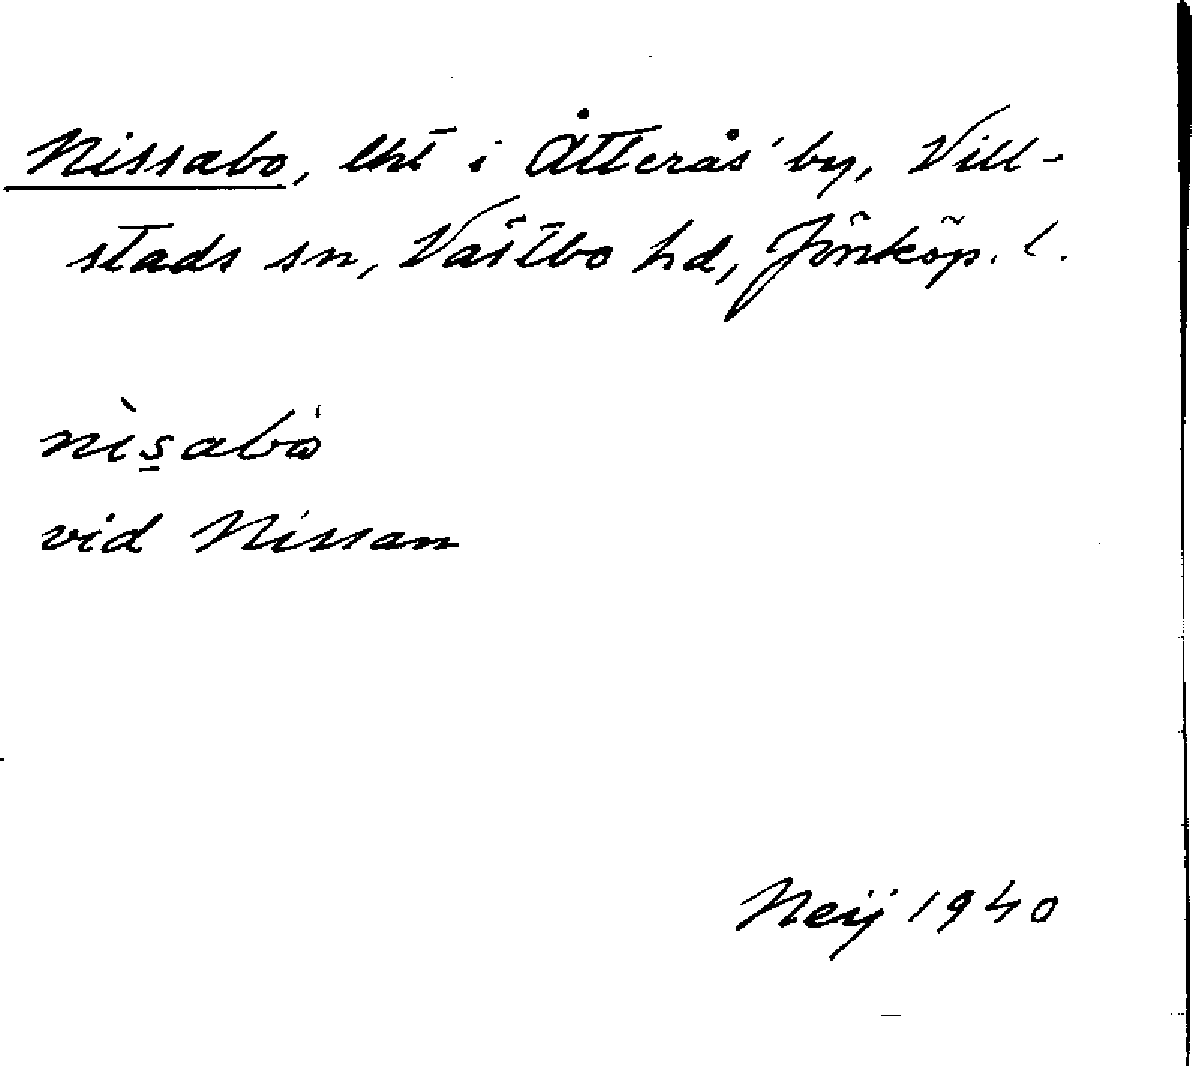 Nissabo, lht i Åtterås by, Vill-
stads sn, Västbo hd, Jönköp. l.
nìs̲abò
vid Nissan
Neij 1940